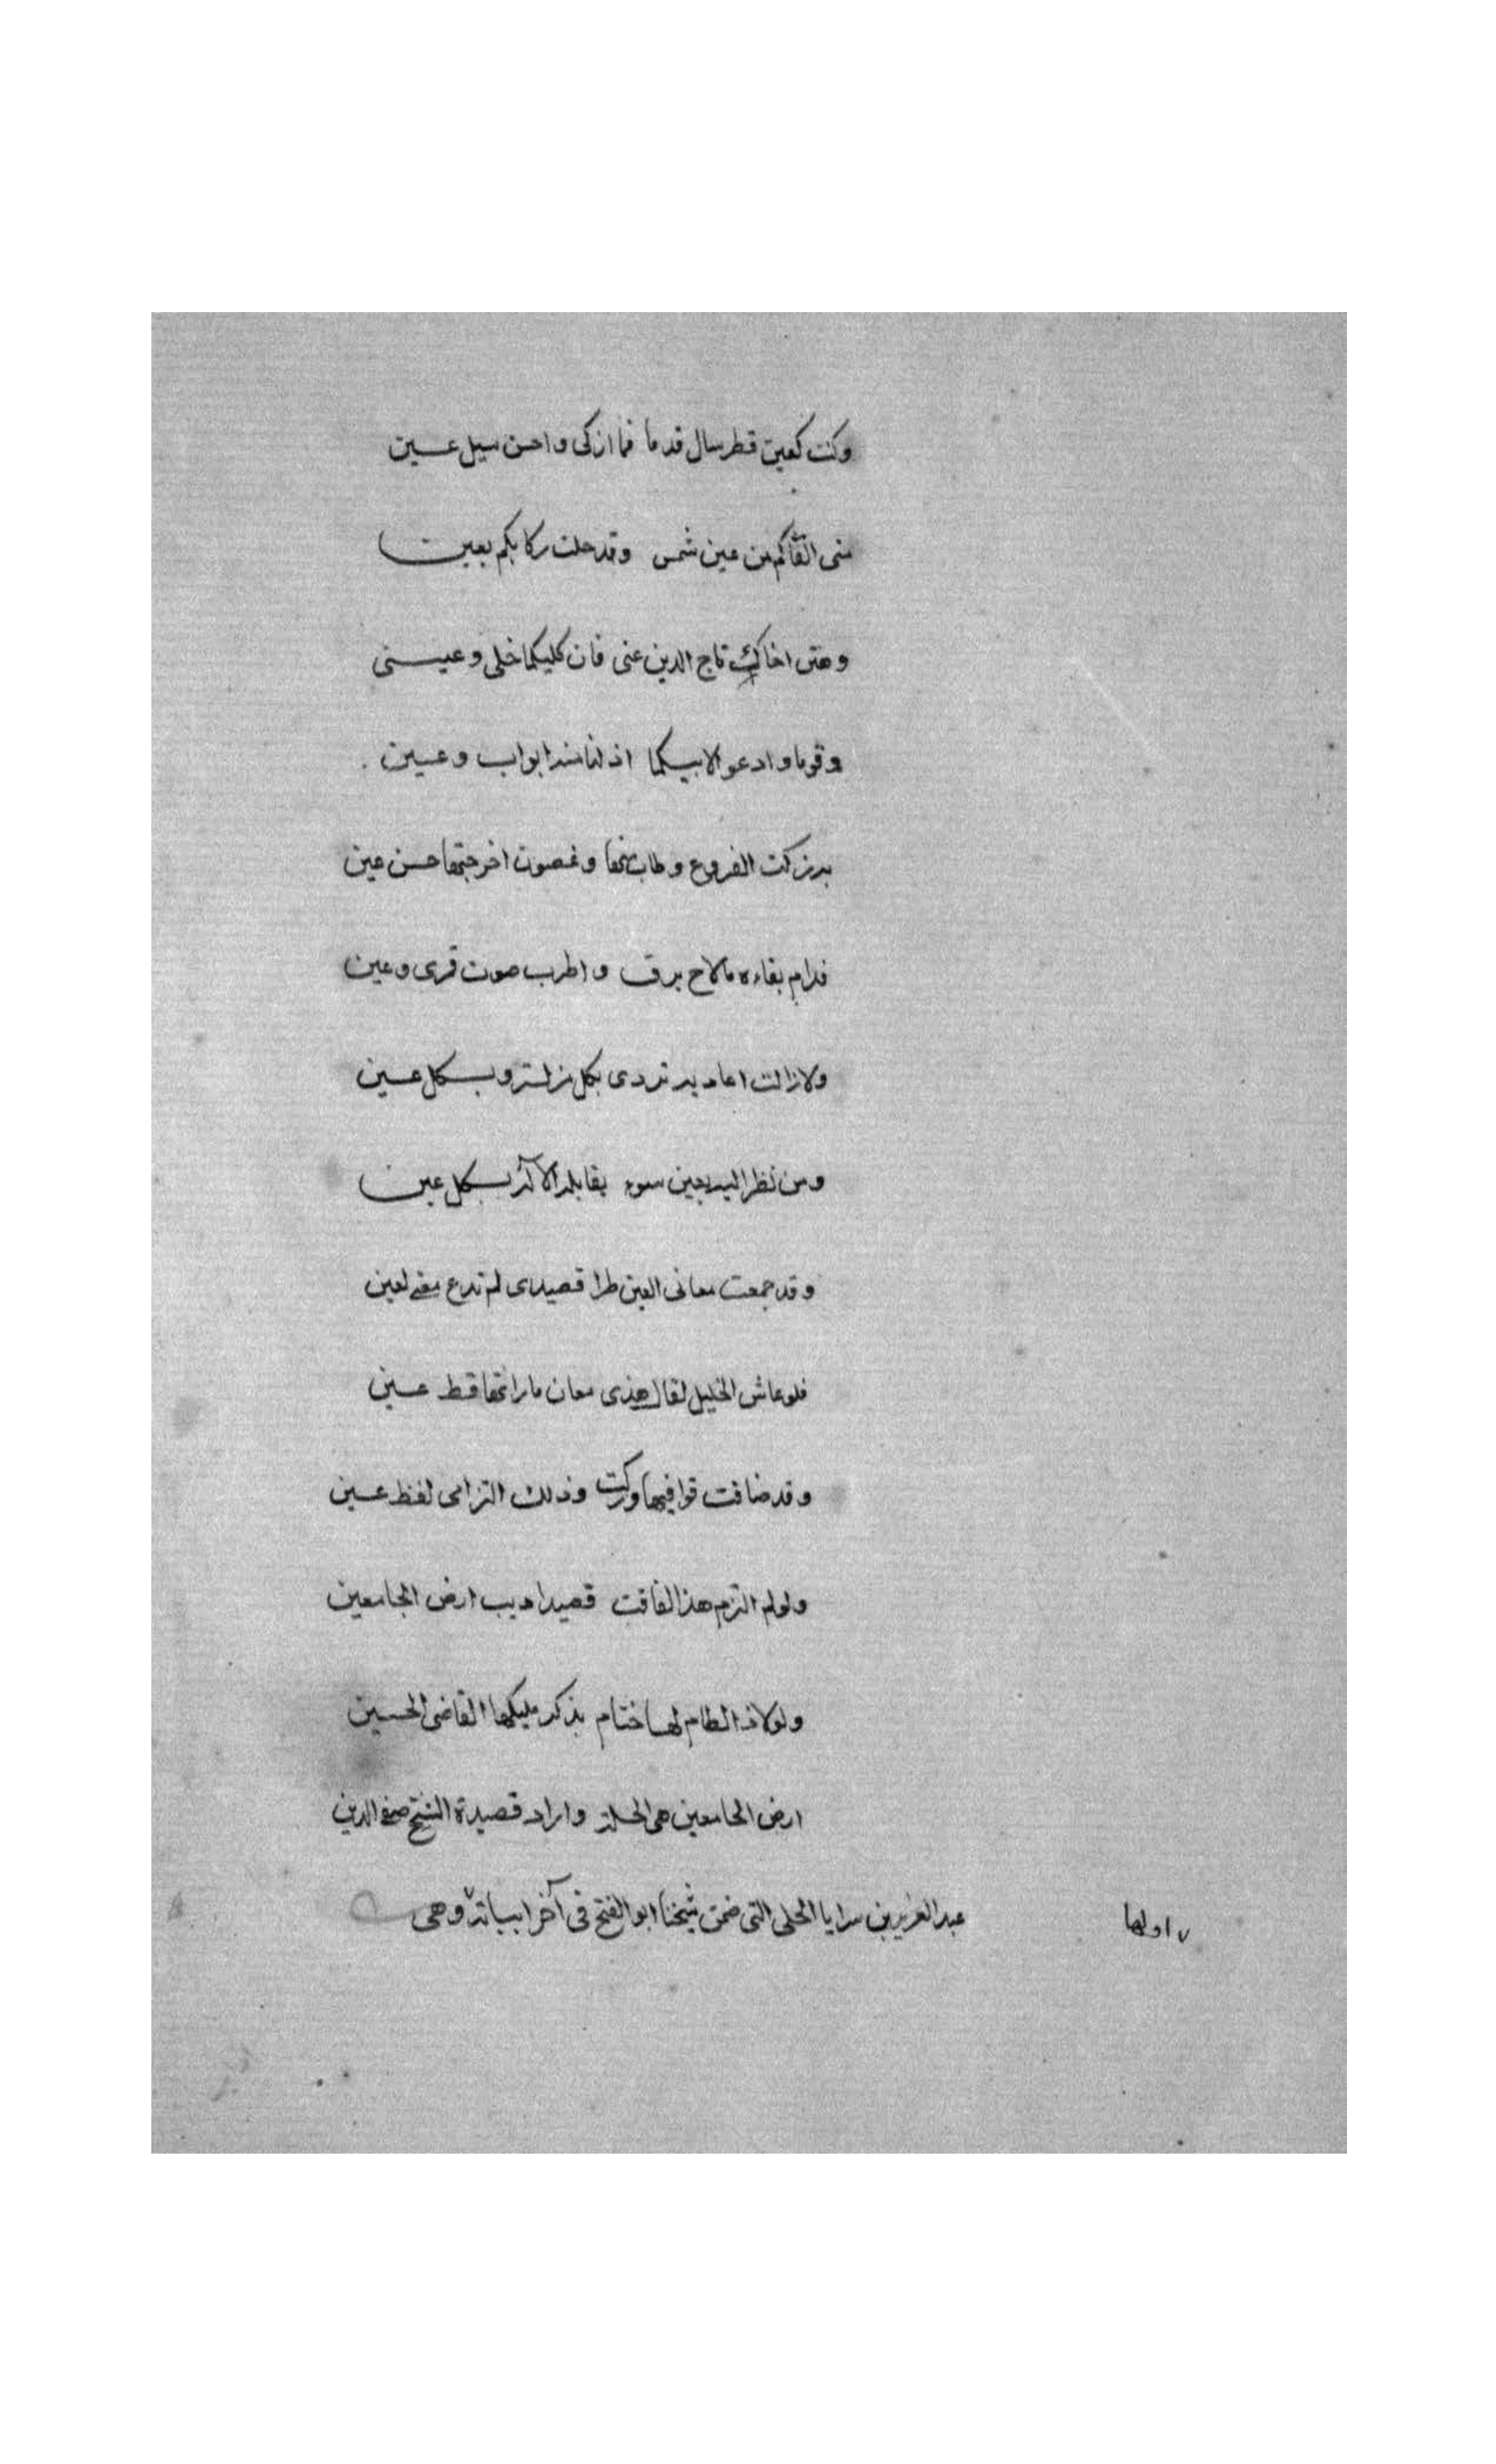 وكنت كعين قطر سال قدما فما ازكى واحسن سيل عين
متى القاكم من عين شمس وقد حلت ركابكم بعين
وهنى اخاك تاج الدين عنى فان كليكما خلى وعينى
وقوما وادعوا لابيكما اذ لنا منه ابواب وعين
به زكت الفروع وطاب منها وغصون اخرجتها حسن عين
فدام بقاءه ما لاح برق واطرب صوت قمرى وعين
ولا زالت اعاديه تردى بكل مزلة وبكل عين
ومن نظر اليه بعين سوء يقابله الاله بكل عين
وقد جمعت معانى العين طرا قصيدى لم تدع معنى لعين
فلو عاش الخليل لقال هذى معان ما راتها قط عين
وقد ضاقت قوافيها وركت وذلك التزامى لفظ عين
ولو لم التزم هذا لفاقت قصيد اديب ارض الجامعين
ولولا ذا لطام لها ختام بذكر مليكها القاضى الحسين
ارض الجامعين هى الحلة واراد قصيدة الشيخ صفى الدين
عبد العزيز بن سرايا الحلى التى ضمن شيخنا ابو الفتح فى آخر ابياته وهى
اولها